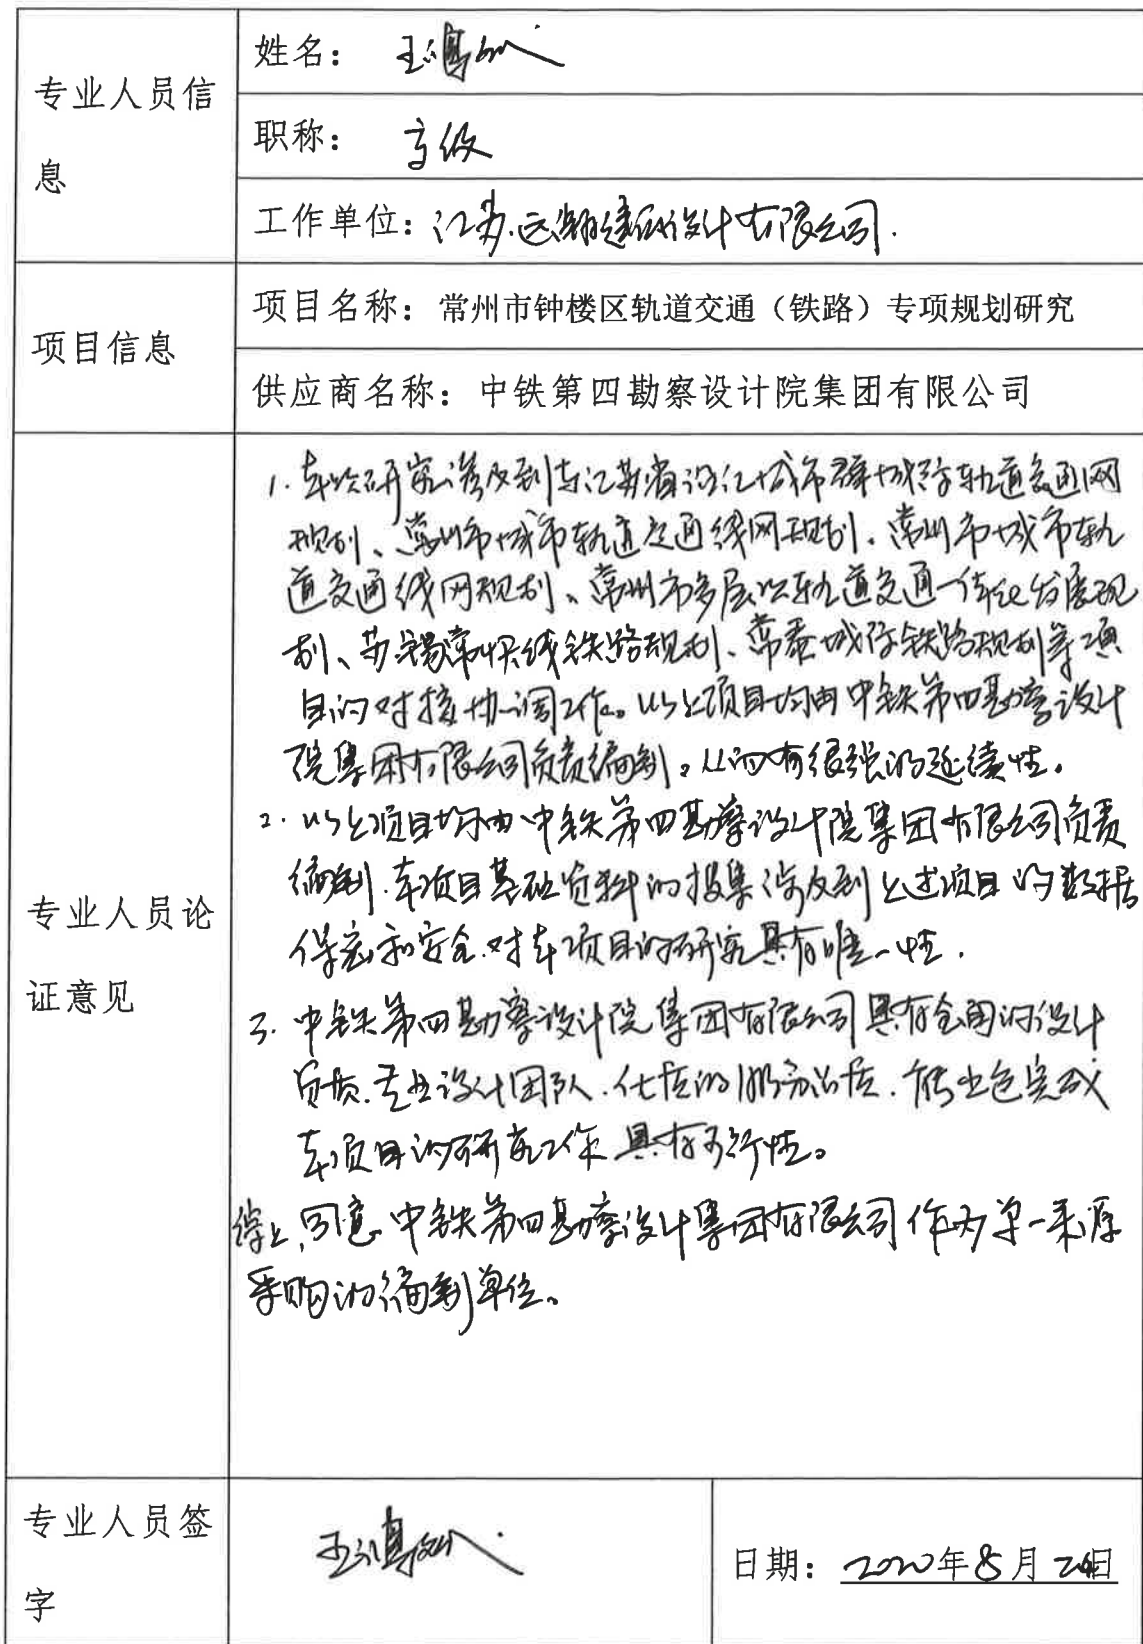 专业人员信
息
姓名：王
职称：高级
工作单位：江苏远瀚建筑设计有限公司.
项目信息
项目名称：常州市钟楼区轨道交通（铁路）专项规划研究
供应商名称：中铁第四勘察设计院集团有限公司
专业人员论
证意见
1. 本次研究涉及到与江苏省沿江城市群城际轨道交通网
规划、常州市城市轨道交通线网规划、常州市城市轨
道交通线网规划、常州市多层次轨道交通一体化发展规
划、苏锡常快线铁路规划、常泰城际铁路规划等项
目的对接协调工作。以上项目均由中铁第四勘察设计
院集团有限公司负责编制。从而有很强的延续性。
2. 以上项目均由中铁第四勘察设计院集团有限公司负责
编制.本项目基础资料的搜集涉及到上述项目的数据
保密和安全.对本项目的研究具有唯一性.
3. 中铁第四勘察设计院集团有限公司具有全国的设计
资质.专业设计团队.优质的服务品质.能出色完成
本项目的研究工作 具有可行性。
综上,同意 中铁第四勘察设计集团有限公司作为单一来源
采购的编制单位。
专业人员签
字
王
日期：2020年8月 日